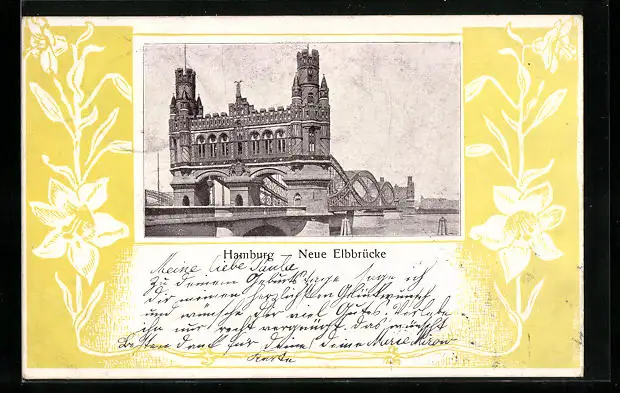 Hamburg Neue Elbbrücke
Meine liebe Taube
Zu deinem Geburtstage sage ich
dir meinen herzlichsten Glückwunsch
und wünsche dir viel Gutes. Verlebe
ihn nur recht vergnügt, das wünscht
Besten dank für deine deine Marie
Karte